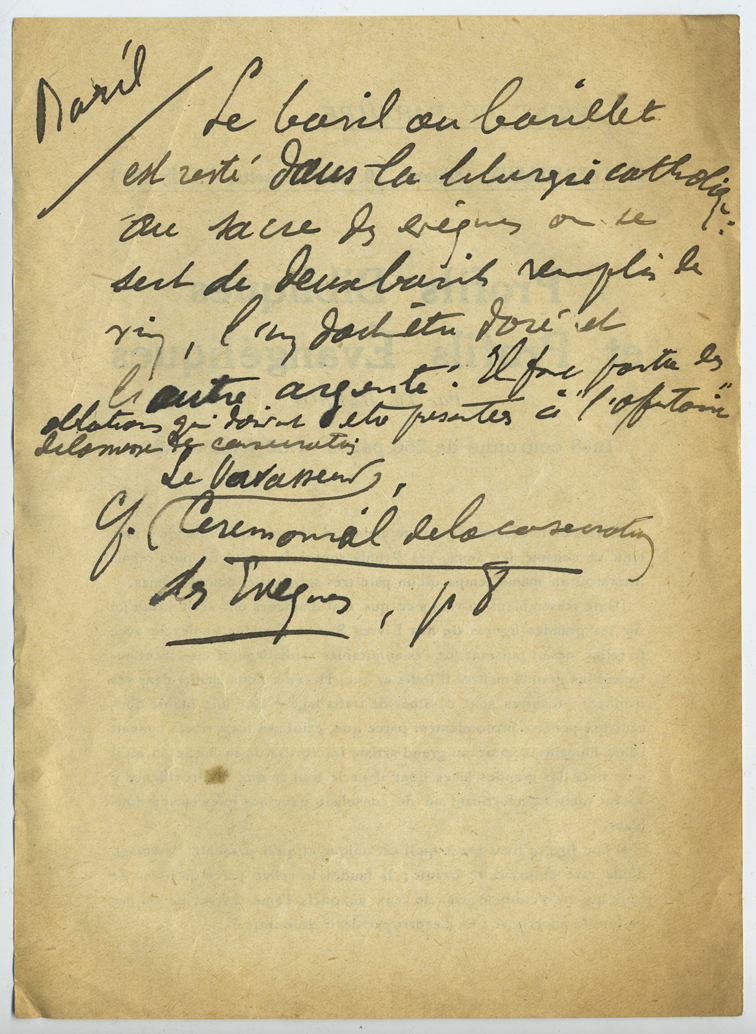 Baril
Le baril ou barillet
est resté dans la liturgie catholiq.
au sacre des evêques on se
sert de deux barils remplis de
vin, l'un doit être doré et
l'autre argenté. Il font partie des
oblations qui doivent être présentées à l'offertoire
de la messe de consecration
Le Vavasseur,
Cf. (Ceremonial de la consecration
des Evêques, p 8